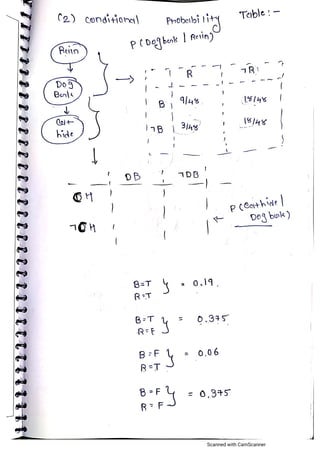 (2) Conditional Probability Table :-
P(Dog bark | Rain)
Rain
Dog
Bark
Cat
hide
R ¬R
B 9/48 18/48
¬B 3/48 18/48
DB ¬DB
CH
¬CH
P(Cat hide |
Dog bark)
B=T
R=T } = 0.19.
B=T
R=F } = 0.375
B=F
R=T } = 0.06
B=F
R=F } = 0.375
Scanned with CamScanner